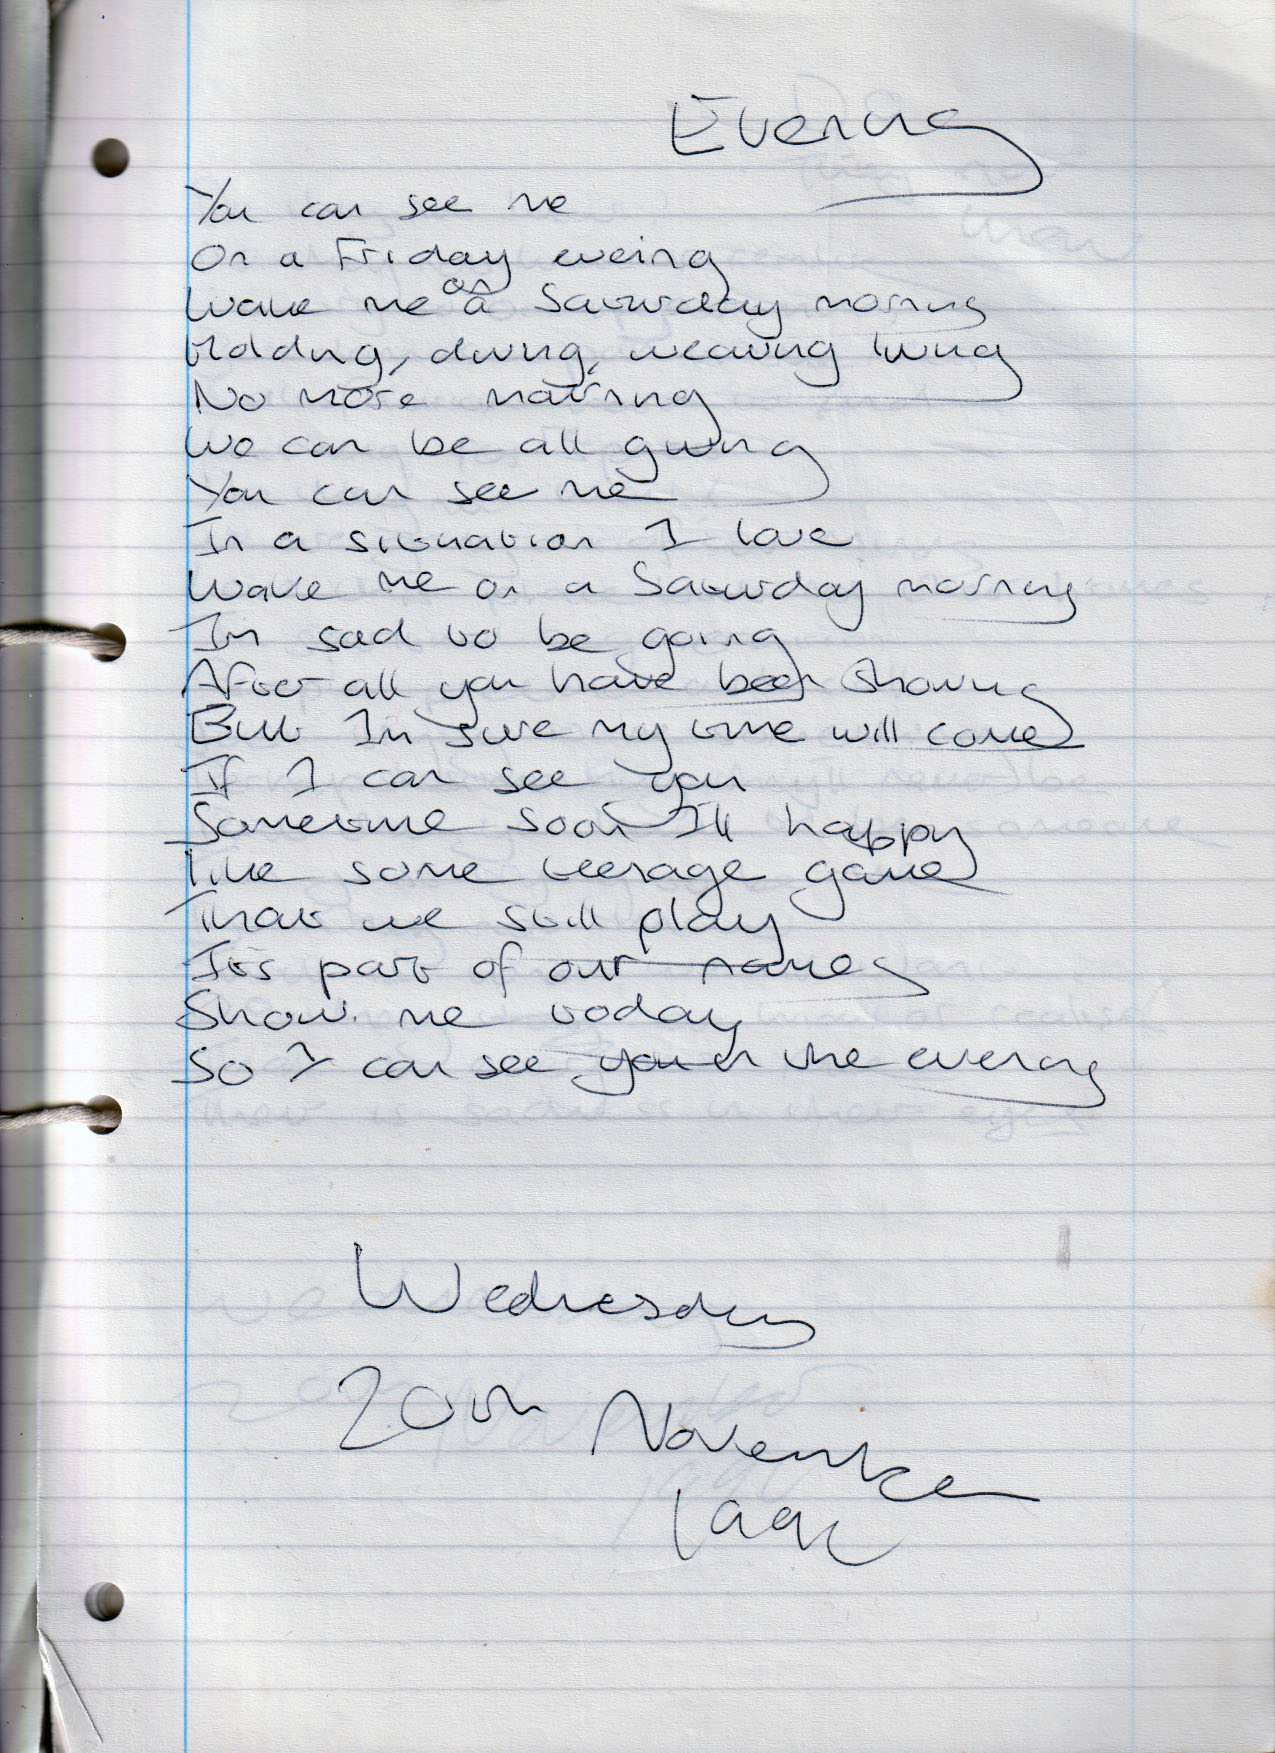 Evening
You can see me
On a Friday eveing
Wake me on a Saturday morning
Holding, diving, weaving living
No more
We can be all giving
You can see me
In a situation I love
Wake me on a Saturday morning
Im sad to be going
After all you have been showing
But Im sure my time will come
If I can see you
Sometime soon Ill happy
like some teenage game
That we still play
Its part of our names
Show me today
So I can see you in the evening
Wednesday
20th November